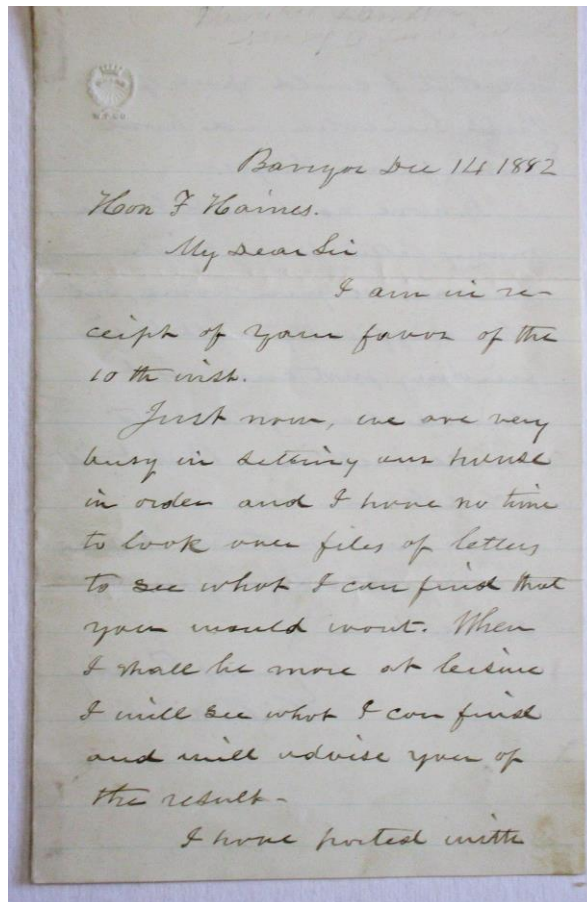 Bangor Dec 14 1882
Hon F Haines.
My Dear Sir
I am in re-
ceipt of your favor of the
10th inst.
Just now, we are very
busy in setting our house
in order and I have no time
to look over files of letters
to see what I can find that
you would want. When
I shall be more at leisure
I will see what I can find
and will advise you of
the result-
I have parted with